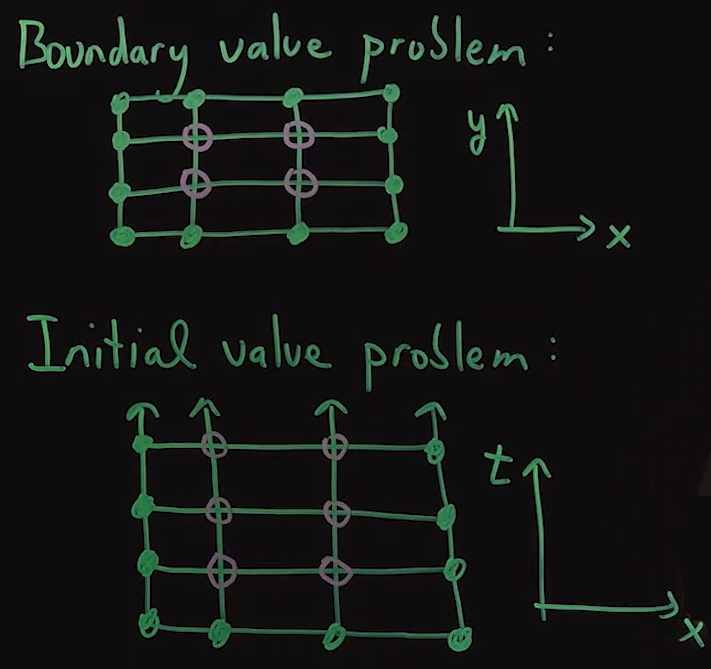 Boundary value problem:
y
x
Initial value problem:
t
x